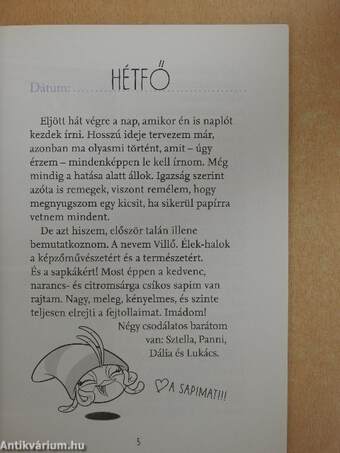 HÉTFŐ
Dátum:
Eljött hát végre a nap, amikor én is naplót
kezdek írni. Hosszú ideje tervezem már,
azonban ma olyasmi történt, amit – úgy
érzem – mindenképpen le kell írnom. Még
mindig a hatása alatt állok. Igazság szerint
azóta is remegek, viszont remélem, hogy
megnyugszom egy kicsit, ha sikerül papírra
vetnem mindent.
De azt hiszem, először talán illene
bemutatkoznom. A nevem Villő. Élek-halok
a képzőművészetért és a természetért.
És a sapkákért! Most éppen a kedvenc,
narancs- és citromsárga csíkos sapim van
rajtam. Nagy, meleg, kényelmes, és szinte
teljesen elrejti a fejtollaimat. Imádom!
Négy csodálatos barátom
van: Sztella, Panni,
Dália és Lukács.
A SAPIMAT!!!
5
Antikvárium.hu